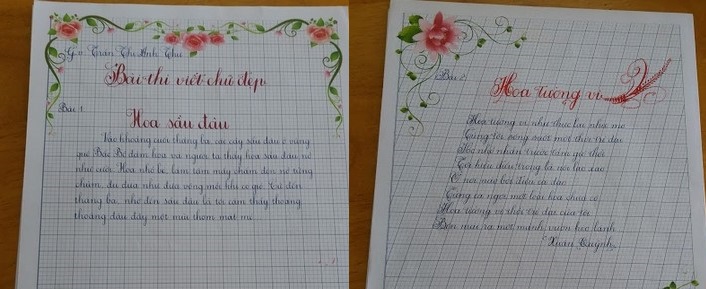 G.v: Trần Thị Anh Thư
Bài thi viết chữ đẹp
Bài 1
Hoa sầu đâu
Vào khoảng cuối tháng ba, các cây sầu đâu ở vùng
quê Bắc Bộ đâm hoa và người ta thấy hoa sầu đâu nở
như cười. Hoa nhỏ bé, lấm tấm mấy chấm đen nở từng
chùm, đu đưa như đưa võng mỗi khi có gió. Cứ đến
tháng ba, nhớ đến sầu đâu là tôi cảm thấy thoang
thoảng đâu đây một mùi thơm mát mẻ.
Bài 2
Hoa tường vi
Hoa tường vi như thực lại như mơ
Cùng tôi sống suốt một thời trẻ dại
hiểu đâu trong lá nói lao xao
nơi nào bởi điệu ca dao
Cùng ca ngợi một loài hoa chưa có
Hoa tường vi thời trẻ dại của tôi
Bỗng mai ra một mảnh vườn heo lánh
Xuân Quỳnh